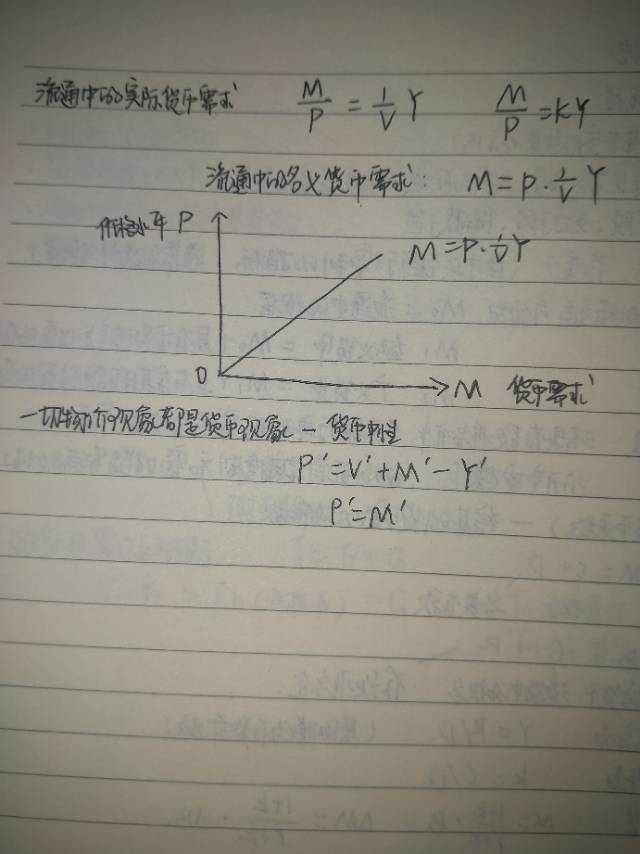 流通中的实际货币需求 M/P = 1/V Y M/P = KY
流通中的名义货币需求: M = P · 1/V Y
价格水平 P
M = P · 1/V Y
0 M 货币需求
一切物价现象都是货币现象 — 货币中性
P' = V' + M' - Y'
P' = M'